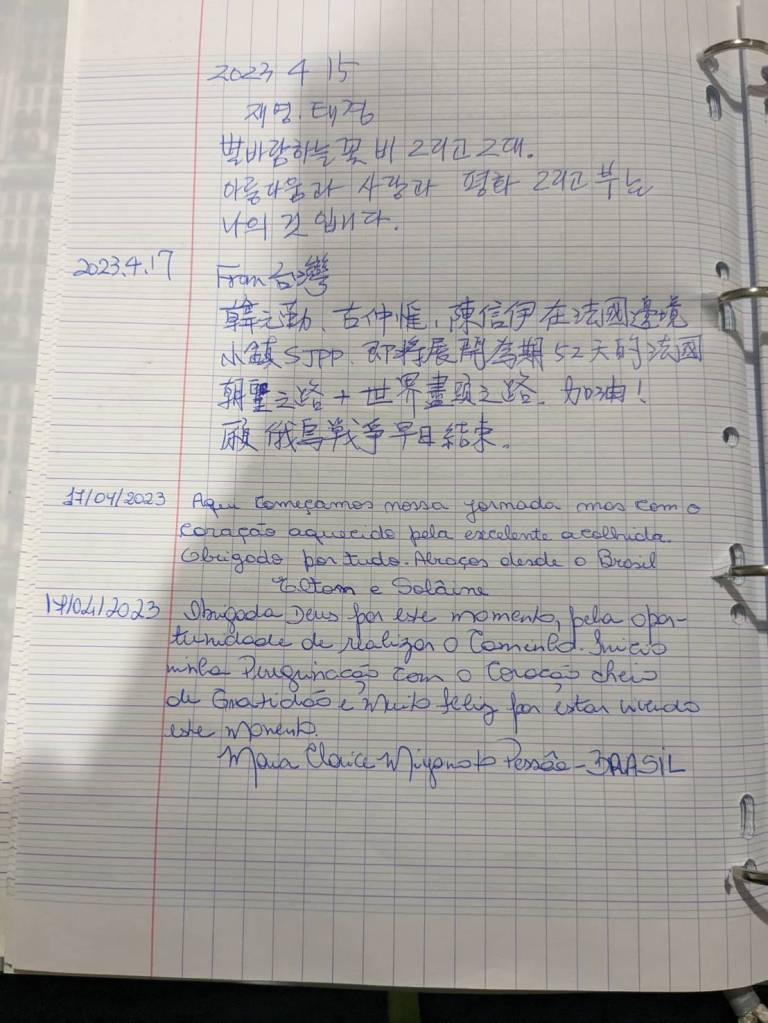 2023 4 15
재영. 태정
별바람하늘꽃 비 그리고 그대.
아름다움과 사랑과 평화 그리고 부는
나의 것 입니다.
2023.4.17 From 台灣
韓元勤、古仲惟、陳信伊在法國邊境
小鎮SJPP. 即將展開為期52天的法國
朝聖之路+世界盡頭之路. 加油!
願俄烏戰爭早日結束.
17/04/2023 Aqui começamos nossa jornada mas com o
coração aquecido pela excelente acolhida.
Obrigado por tudo. Abraços desde o Brasil
e Solaine
17/04/2023 Obrigada Deus por este momento, pela opor-
tunidade de realizar o Caminho. Inicio
minha Peregrinação com o Coração cheio
de Gratidão e Muito feliz por estar vivendo
este momento.
Maria Clarice Pessôa - BRASIL